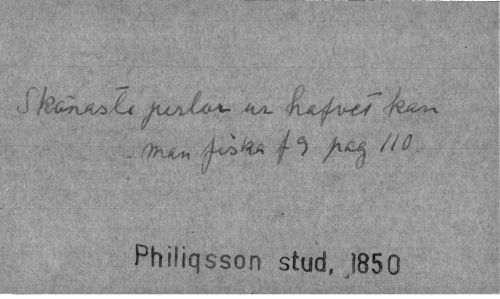 Skönaste perlor ur hafvet kan
man fiska f 9 pag 110.
Philiqsson stud, 1850